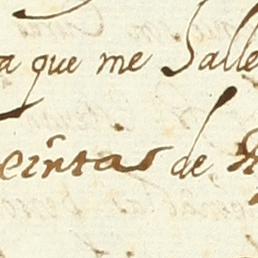 a que me Salle
eintas de